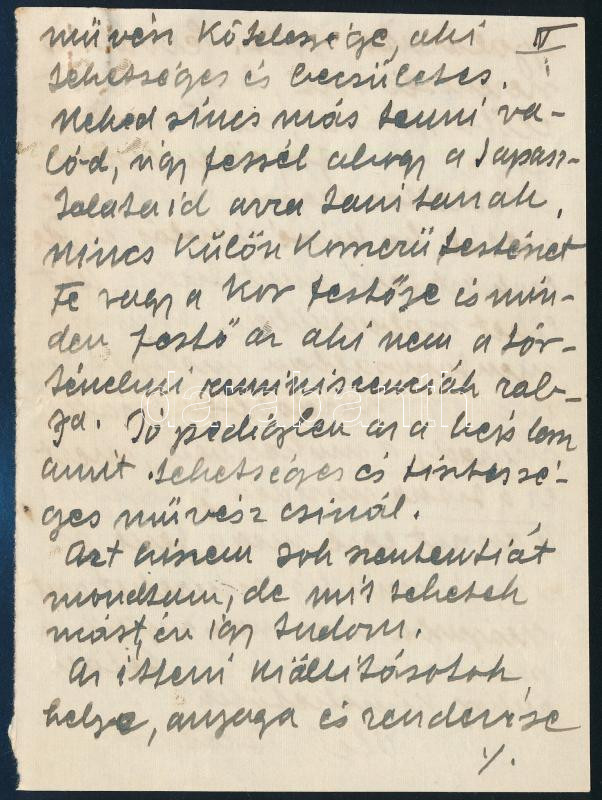 művén kötelessége, aki IV
tehetséges és becsületes.
Neked sincs más tenni va-
lód, úgy fessél ahogy a tapasz-
talataid arra tanitanak,
nincs külön korszerü festészet
Te vagy a kor festője és min-
den festő az aki nem a tör-
ténelmi reminiszenciák rab-
ja. Jó pedig az a
amit tehetséges és tisztessé-
ges művész csinál.
Azt hiszem sok szentenciát
mondtam, de mit tehetek
mást, én igy tudom.
Az itteni kiállitásotok
helye, anyaga és rendezése
1/.
darabanth